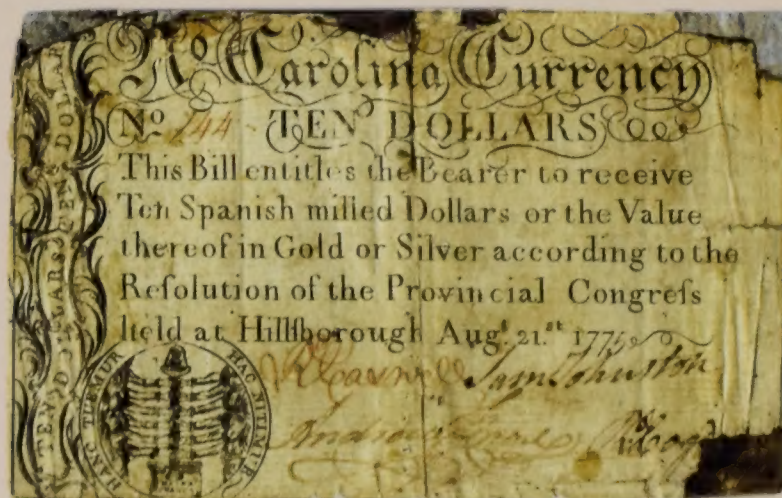 No Carolina Currency
No 244 TEN DOLLARS
This Bill entitles the Bearer to receive
Ten Spanish milled Dollars or the Value
thereof in Gold or Silver according to the
Reſolution of the Provincial Congreſs
held at Hillſborough Augt. 21.st 1775
RCaswell Sam Johnston
Andrew
HANC TUEMUR HAC NITIMUR
TEN DOLLARS TEN DOLLAR